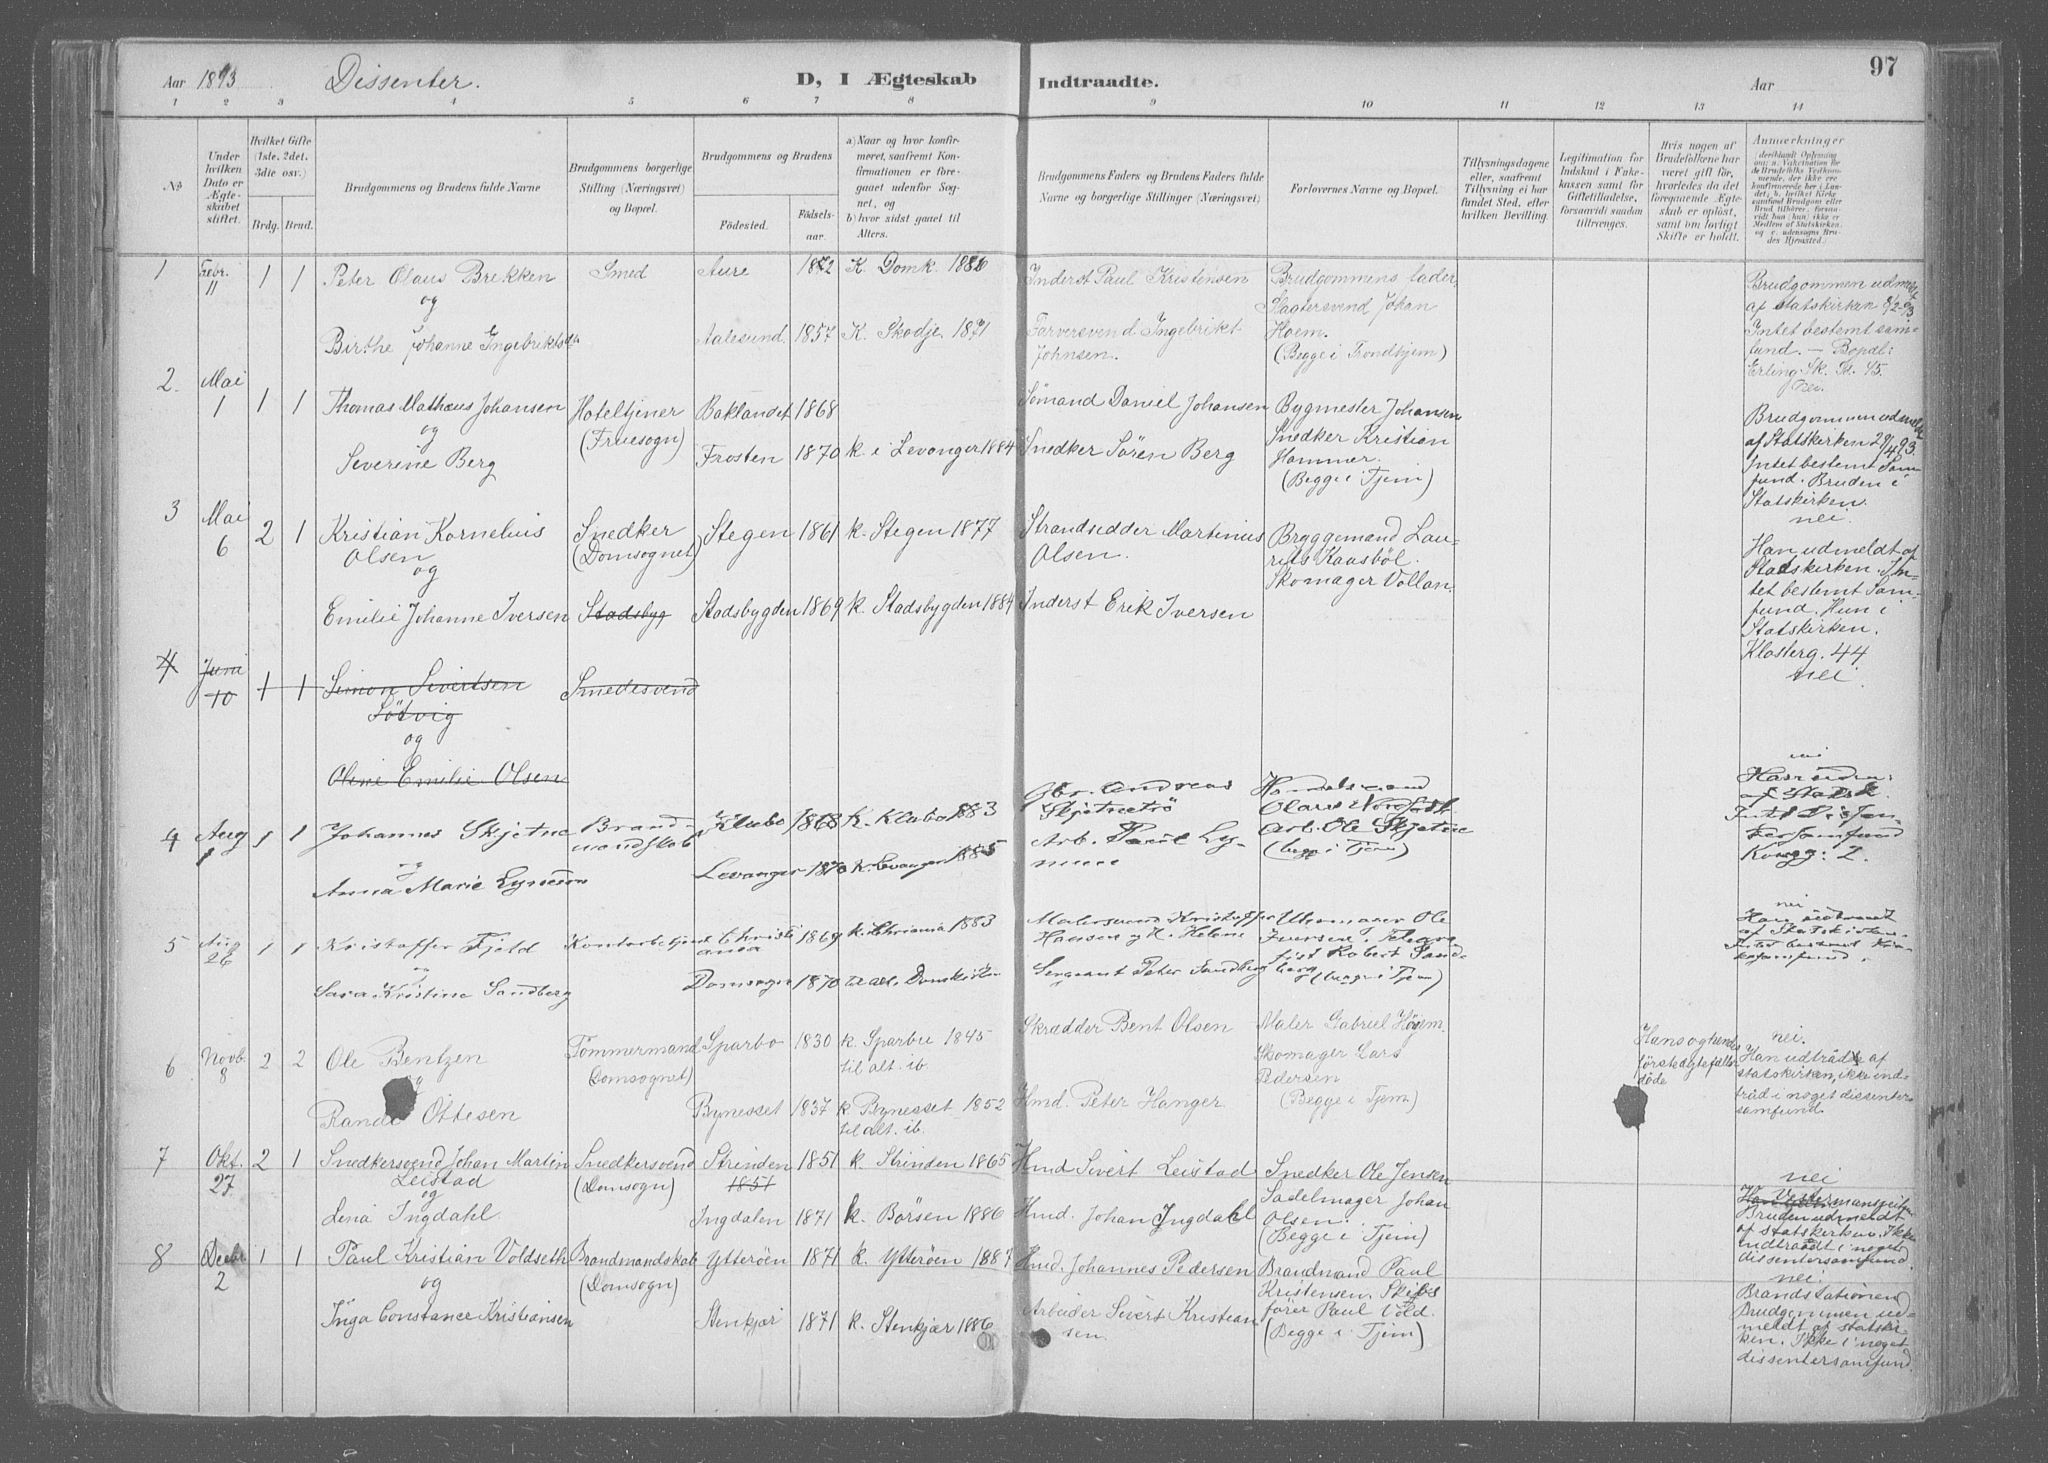 Aar 1893 Dissenter. D, I Ægteskab Indtraadte. Aar 97
1 2 3 4 5 6 7 8 9 10 11 12 13 14
№
Under hvilken Dato er Ægteskabet stiftet.
Hvilket Gifte (1ste. 2det. 3die osv.)
Brdg. Brud.
Brudgommens og Brudens fulde Navne
Brudgommens borgerlige Stilling (Næringsvei) og Bopæl.
Brudgommens og Brudens
Fødested.
Fødselsaar.
a) Naar og hvor konfirmeret, saafremt Konfirmationen er foregaaet udenfor Sognet, og
b) hvor sidst gaaet til Alters.
Brudgommens Faders og Brudens Faders fulde Navne og borgerlige Stillinger (Næringsvei)
Forlovernes Navne og Bopæl.
Tillysningsdagene eller, saafremt Tillysning ei har fundet Sted, efter hvilken Bevilling.
Legitimation for Indskud i Enkekassen samt for Giftetilladelse, forsaavidt saadan tiltrænges.
Hvis nogen af Brudefolkene har været gift før, hvorledes da det foregaaende Ægteskab er opløst, samt om lovligt Skifte er holdt.
Anmærkninger
1 Febr. 11 1 1 Peter Olaus Brekken
og
Birthe Johanne Ingebriktsda
Smed
Aure 1872 K. Domk. 1886
Aalesund. 1857 K. Skodje. 1871
Inderst Paul Kristensen
Farversvend Ingebrikt
Johnsen.
Brudgommens fader,
Slagtersvend Johan
Hoem.
(Begge i Trondhjem)
Brudgommen udmeldt
af statskirken 8/2-93.
Intet bestemt sam-
fund. – Bopæl:
Erling Sk. G. 45.
nei.
2. Mai 1 1 1 Thomas Mathæus Johansen
og
Severine Berg
Hoteltjener
(Fruesogn)
Baklandet 1868
Frosten 1870 k. i Levanger 1884
Sömand Daniel Johansen
Snedker Sören Berg
Bygmester Johansen
Snedker Kristian
Hammer.
(Begge i Tjem)
Brudgommen udmeldt
af Statskirken 29/4 93.
Intet bestemt Sam-
fund. Bruden i
Statskirken.
nei.
3 Mai 6 2 1 Kristian Kornelius
Olsen
og
Emilie Johanne Iversen
Snedker
(Domsognet)
Stadsbyg
Stegen 1861 k. Stegen 1877
Stadsbygden 1869 k. Stadsbygden 1884
Strandsidder Martinius
Olsen.
Inderst Erik Iversen
Bryggemand Lau-
rits Kaasböl.
Skomager Vollan.
Han udmeldt af
Statskirken. In-
tet bestemt Sam-
fund. Hun i
Statskirken.
Klosterg. 44
nei.
4 Juni 10 1 1 Simon Sivertsen
Sötvig
og
Oline Emilie Olsen
Smedesvend
4 Aug 1 1 1 Johannes Skjetne
og
Anna Marie Lynum
Brand-
mandskab
Klæbo 1868 k. Klæbo 1883
Levanger 1870 k. Levanger 1885
Gbr. Andreas
Skjetnetrö
Arb. Paul Ly-
num
Handelsmand
Olaus Nordsæth
Arb. Ole Skjetne
(begge i Tjem)
nei
5 Aug 26 1 1 Kristoffer Fjeld
og
Sara Kristine Sandberg
Kontorbetjent
Christi-
ania 1869 k. Chriania 1883
Domsogn 1870 til alt. Domkirken
Malersvend Kristoffer
Hansen
Sergeant Peter Sandberg
Uhrmager Ole
Iversen, Telegra-
fist Robert Sand-
berg (begge i Tjem)
nei
6 Novb. 8 2 2 Ole Bentzen
og
Randi Ottesen
Tömmermand
(Domsognet)
Sparbo 1830 k. Sparbu 1845
til alt. ib.
Bynesset 1837 k. Bynesset 1852
til alt. ib.
Skrædder Bent Olsen
Hmd. Peter Hanger.
Maler Gabriel Högem.
Skomager Lars
Pedersen
(Begge i Tjem)
Hans og hendes
förste ægtefælle
döde
nei.
Han udtrådt af
statskirken, ikke ind-
tråd i noget dissenter
samfund.
7 Okt. 27 2 1 Snedkersvend Johan Martin
Leistad
og
Lina Ingdahl.
Snedkersvend
(Domsogn)
Strinden 1851 k. Strinden 1865
1851
Ingdalen 1871 k. Börsen 1886
Hmd Sivert Leistad
Hmd. Johan Ingdahl
Snedker Ole Jensen
Sadelmager Johan
Olsen.
(Begge i Tjem)
nei
Bruden udmeldt
af statskirken. Ikke
indtraadt i noget
dissentersamfund.
8 Decbr 2 1 1 Paul Kristian Voldseth
og
Inga Constance Kristiansen
Brandmandskab
(Domsogn)
Ytteröen 1871 k. Ytteröen 1887
Stenkjær 1871 k. Stenkjær 1886
Hmd. Johannes Pedersen
Arbeider Sivert Kristian
sen.
Brandmand Paul
Kristensen. Skibs
förer Paul Vold.
(Begge i Tjem)
nei.
Brandstationen
Brudgommen ud-
meldt af statskir-
ken. Ikke i noget
dissentersamfund.